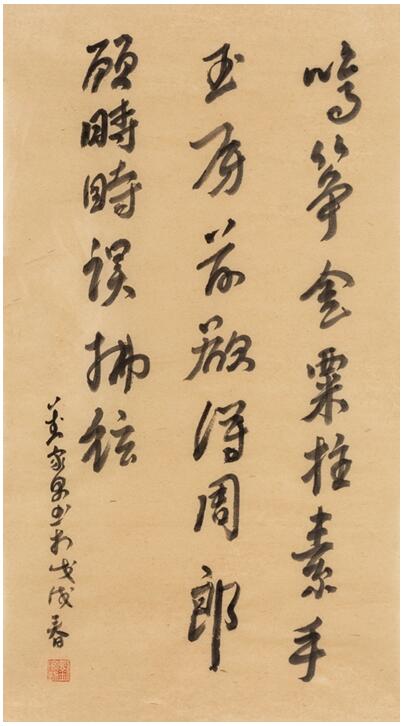 鳴筝金粟柱素手
玉房前欲得周郎
顧時時誤拂絃
家書於戊戌春